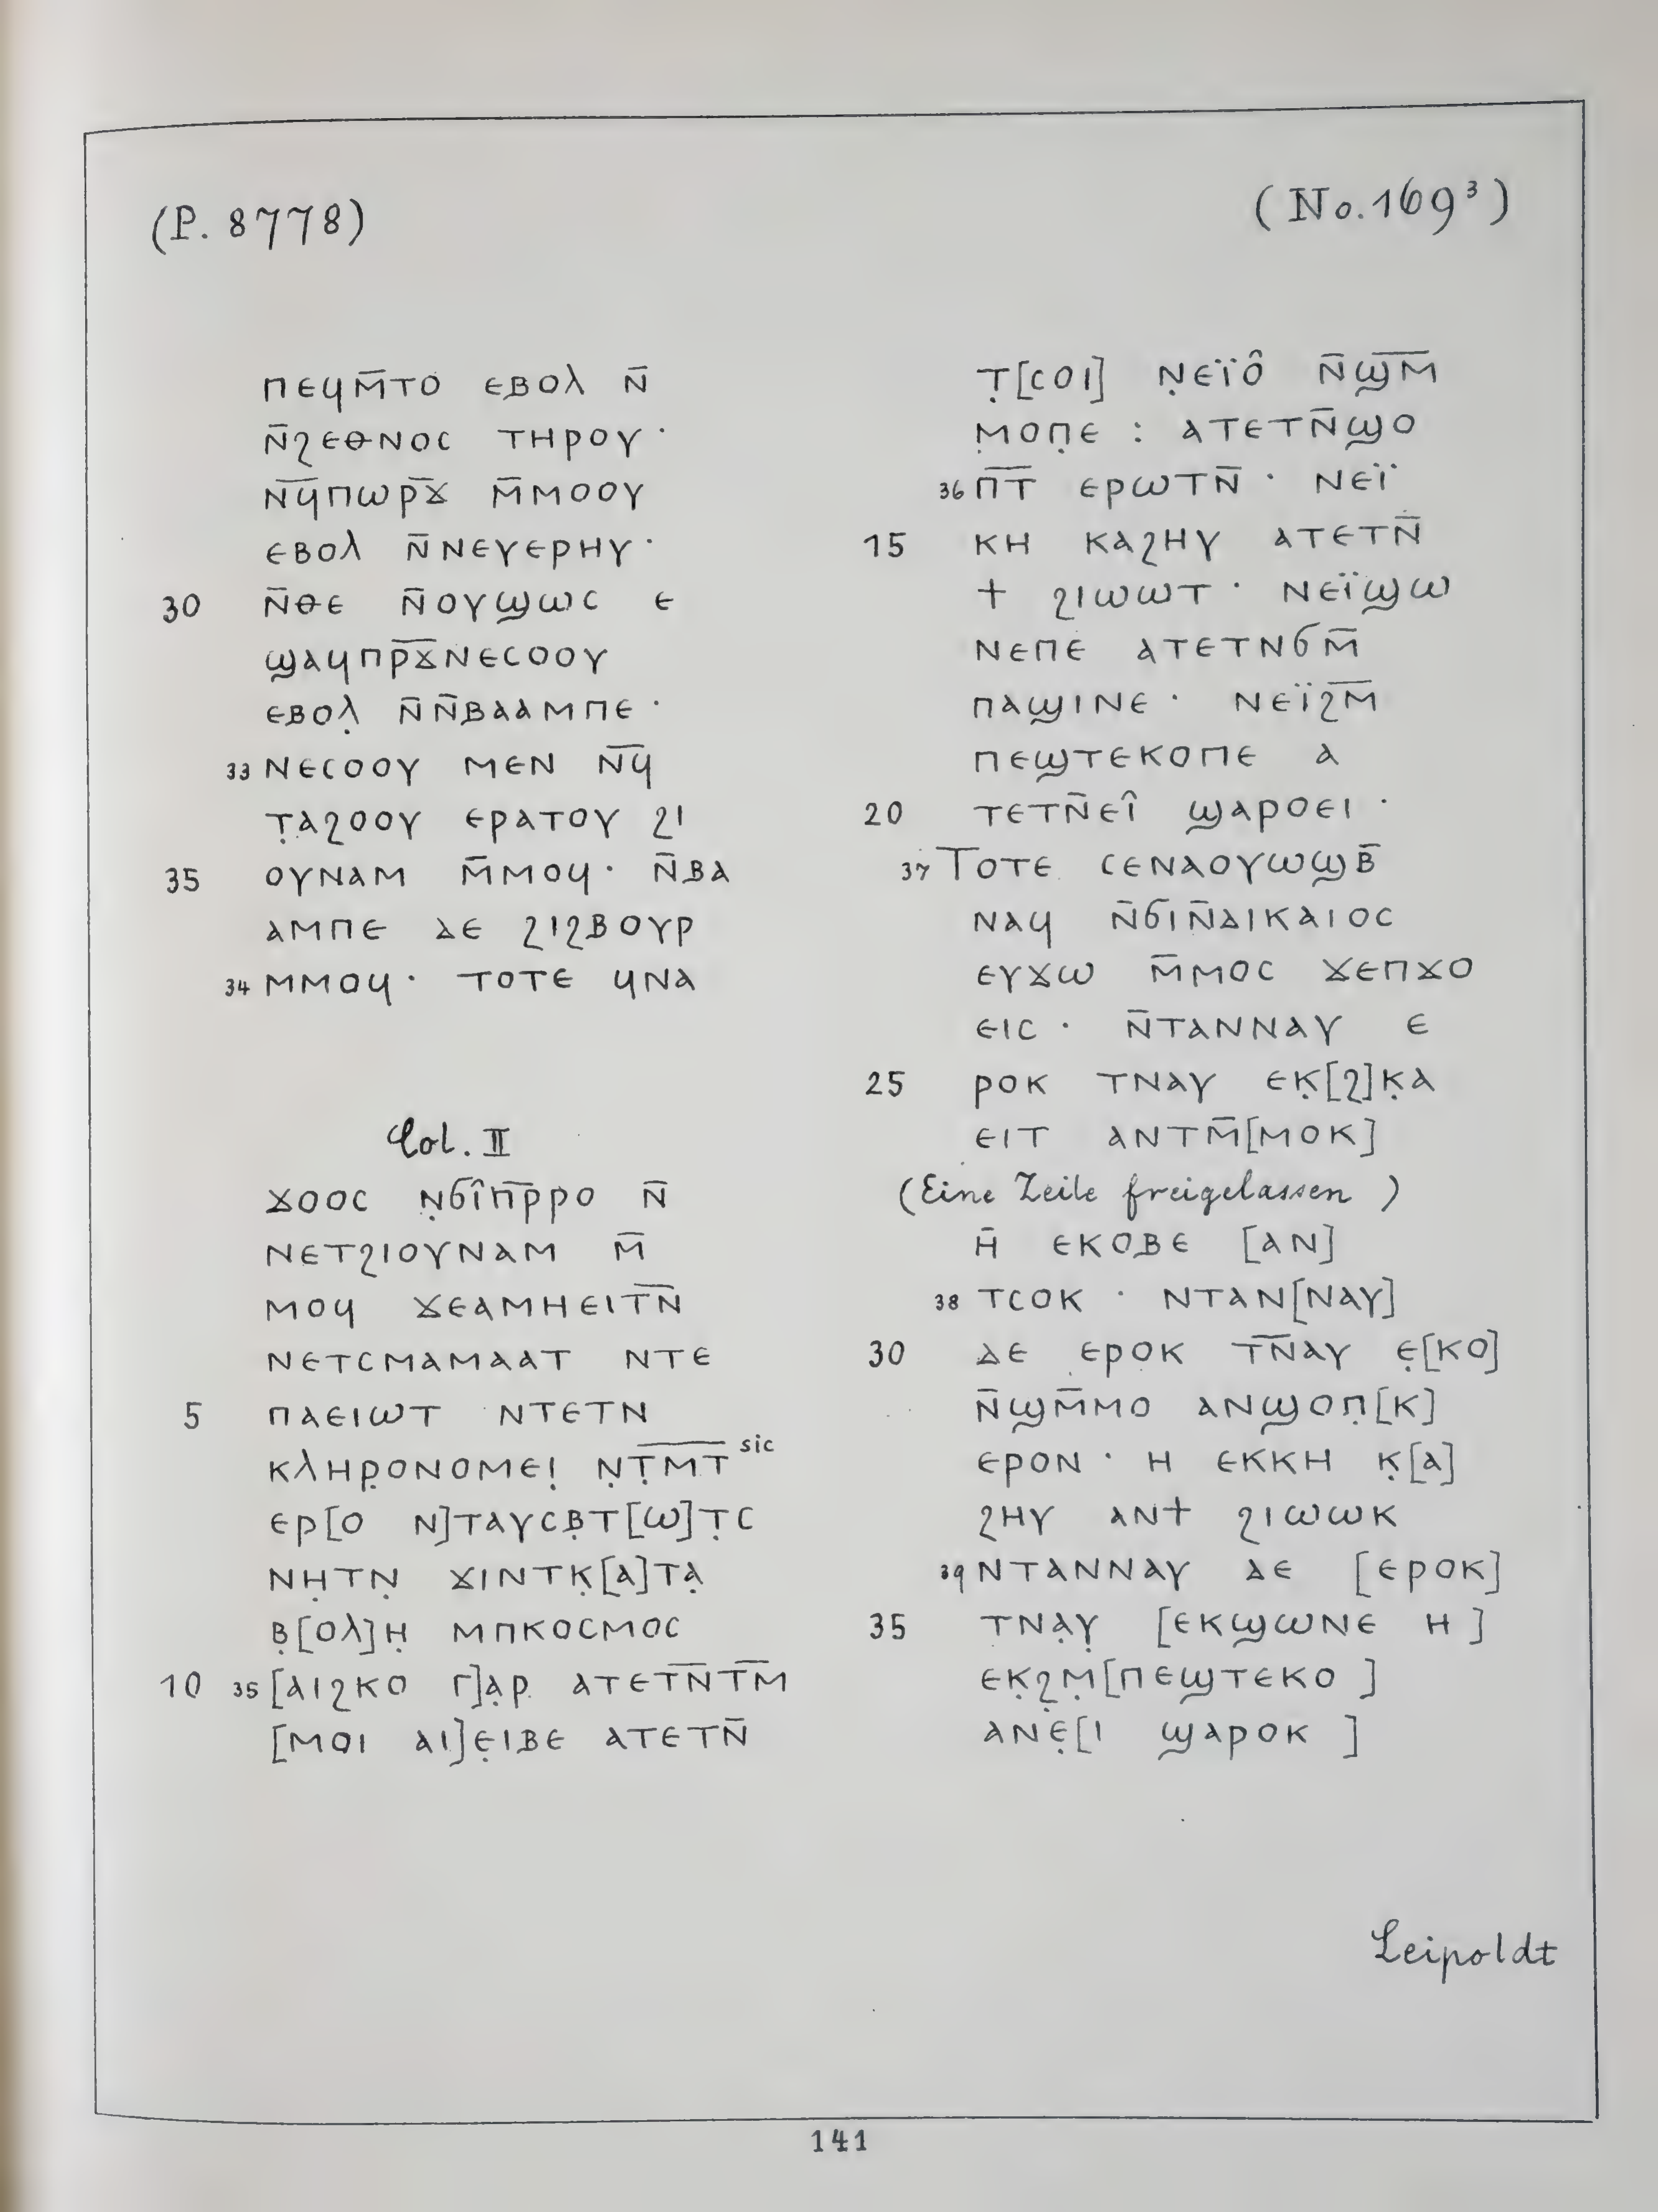 (P. 8778)
(No. 169³)
ⲡⲉϥⲙ̄ⲧⲟ ⲉⲃⲟⲗ ⲛ̄
ⲛ̄ϩⲉⲑⲛⲟⲥ ⲧⲏⲣⲟⲩ ·
ⲛ̄ϥ̄ⲡⲱⲣ̄ϫ̄ ⲙ̄ⲙⲟⲟⲩ
ⲉⲃⲟⲗ ⲛ̄ⲛⲉⲩⲉⲣⲏⲩ ·
30 ⲛ̄ⲑⲉ ⲛ̄ⲟⲩϣⲱⲥ ⲉ
ϣⲁϥⲡⲣ̄ϫ̄ⲛⲉⲥⲟⲟⲩ
ⲉⲃⲟⲗ̣ ⲛ̄ⲛ̄ⲃⲁⲁⲙⲡⲉ ·
33 ⲛⲉⲥⲟⲟⲩ ⲙⲉⲛ ⲛ̄ϥ̄
ⲧ̣ⲁϩⲟⲟⲩ ⲉⲣⲁⲧⲟⲩ ϩⲓ
35 ⲟⲩⲛⲁⲙ ⲙ̄ⲙⲟϥ · ⲛ̄ⲃⲁ
ⲁⲙⲡⲉ ⲇⲉ ϩⲓϩⲃⲟⲩⲣ
34 ⲙⲙⲟϥ · ⲧⲟⲧⲉ ϥⲛⲁ
Col. II
ϫⲟⲟⲥ ⲛ̣ϭⲓ̂ⲡ̄ⲣ̄ⲣⲟ ⲛ̄
ⲛⲉⲧϩⲓⲟⲩⲛⲁⲙ ⲙ̄
ⲙⲟϥ ϫⲉⲁⲙⲏⲉⲓⲧ̄ⲛ̄
ⲛⲉⲧⲥⲙⲁⲙⲁⲁⲧ ⲛⲧⲉ
5 ⲡⲁⲉⲓⲱⲧ ⲛⲧⲉⲧⲛ
ⲕⲗⲏⲣ̣ⲟⲛⲟⲙⲉⲓ̣ ⲛ̣ⲧ̣̄ⲙ̄ⲧ̄ sic
ⲉⲣ[ⲟ ⲛ]ⲧⲁⲩⲥⲃ̣ⲧ[ⲱ]ⲧ̣ⲥ
ⲛⲏ̣ⲧⲛ̣ ϫⲓⲛⲧⲕ̣[ⲁ]ⲧⲁ̣
ⲃ̣[ⲟⲗ]ⲏ̣ ⲙⲡⲕⲟⲥⲙⲟⲥ
10 35 [ⲁⲓϩⲕⲟ ⲅ]ⲁ̣ⲣ ⲁⲧⲉⲧ̄ⲛ̄ⲧ̄ⲙ̄
[ⲙⲟⲓ ⲁⲓ]ⲉ̣ⲓⲃⲉ ⲁⲧⲉⲧⲛ̄
ⲧ̣[ⲥⲟⲓ] ⲛ̣ⲉⲓ̈ⲟ̂ ⲛ̄ϣ̄ⲙ̄
ⲙ̣ⲟⲡ̣ⲉ : ⲁⲧⲉⲧⲛ̄ϣⲟ
36 ⲡ̄ⲧ̄ ⲉⲣⲱⲧⲛ̄ · ⲛⲉⲓ̈
15 ⲕⲏ ⲕⲁϩⲏⲩ ⲁⲧⲉⲧⲛ̄
ϯ ϩⲓⲱⲱⲧ · ⲛⲉⲓ̈ϣⲱ
ⲛⲉⲡⲉ ⲁⲧⲉⲧⲛϭⲙ̄
ⲡⲁϣⲓⲛⲉ · ⲛⲉⲓ̈ϩ̄ⲙ̄
ⲡⲉϣⲧⲉⲕⲟⲡⲉ ⲁ
20 ⲧⲉⲧⲛ̄ⲉⲓ̂ ϣⲁⲣⲟⲉⲓ ·
37 ⲧⲟⲧⲉ ⲥⲉⲛⲁⲟⲩⲱϣⲃ̄
ⲛⲁϥ ⲛ̄ϭⲓⲛ̄ⲇⲓⲕⲁⲓⲟⲥ
ⲉⲩϫⲱ ⲙ̄ⲙⲟⲥ ϫⲉⲡϫⲟ
ⲉⲓⲥ · ⲛ̄ⲧⲁⲛⲛⲁⲩ ⲉ
25 ⲣⲟⲕ ⲧⲛⲁⲩ ⲉⲕ̣[ϩ]ⲕ̣ⲁ
ⲉⲓⲧ ⲁⲛⲧⲙ̄[ⲙⲟⲕ]
(Eine Zeile freigelassen )
ⲏ̄ ⲉⲕⲟⲃⲉ [ⲁⲛ]
38 ⲧⲥⲟⲕ · ⲛⲧⲁⲛ[ⲛⲁⲩ]
30 ⲇⲉ ⲉⲣⲟⲕ ⲧ̄ⲛ̄ⲁⲩ ⲉ̣[ⲕⲟ]
ⲛ̄ϣⲙ̄ⲙⲟ ⲁⲛϣⲟⲡ̣[ⲕ]
ⲉⲣⲟⲛ · ⲏ ⲉⲕⲕⲏ ⲕ̣[ⲁ]
ϩⲏⲩ ⲁⲛϯ ϩⲓⲱⲱⲕ
39 ⲛⲧⲁⲛⲛⲁⲩ ⲇⲉ [ⲉⲣⲟⲕ]
35 ⲧⲛⲁ̣ⲩ̣ [ⲉⲕϣⲱⲛⲉ ⲏ ]
ⲉⲕ̣ϩ̣ⲙ̣[ⲡⲉϣⲧⲉⲕⲟ ]
ⲁⲛⲉ̣[ⲓ ϣⲁⲣⲟⲕ ]
Leipoldt
141